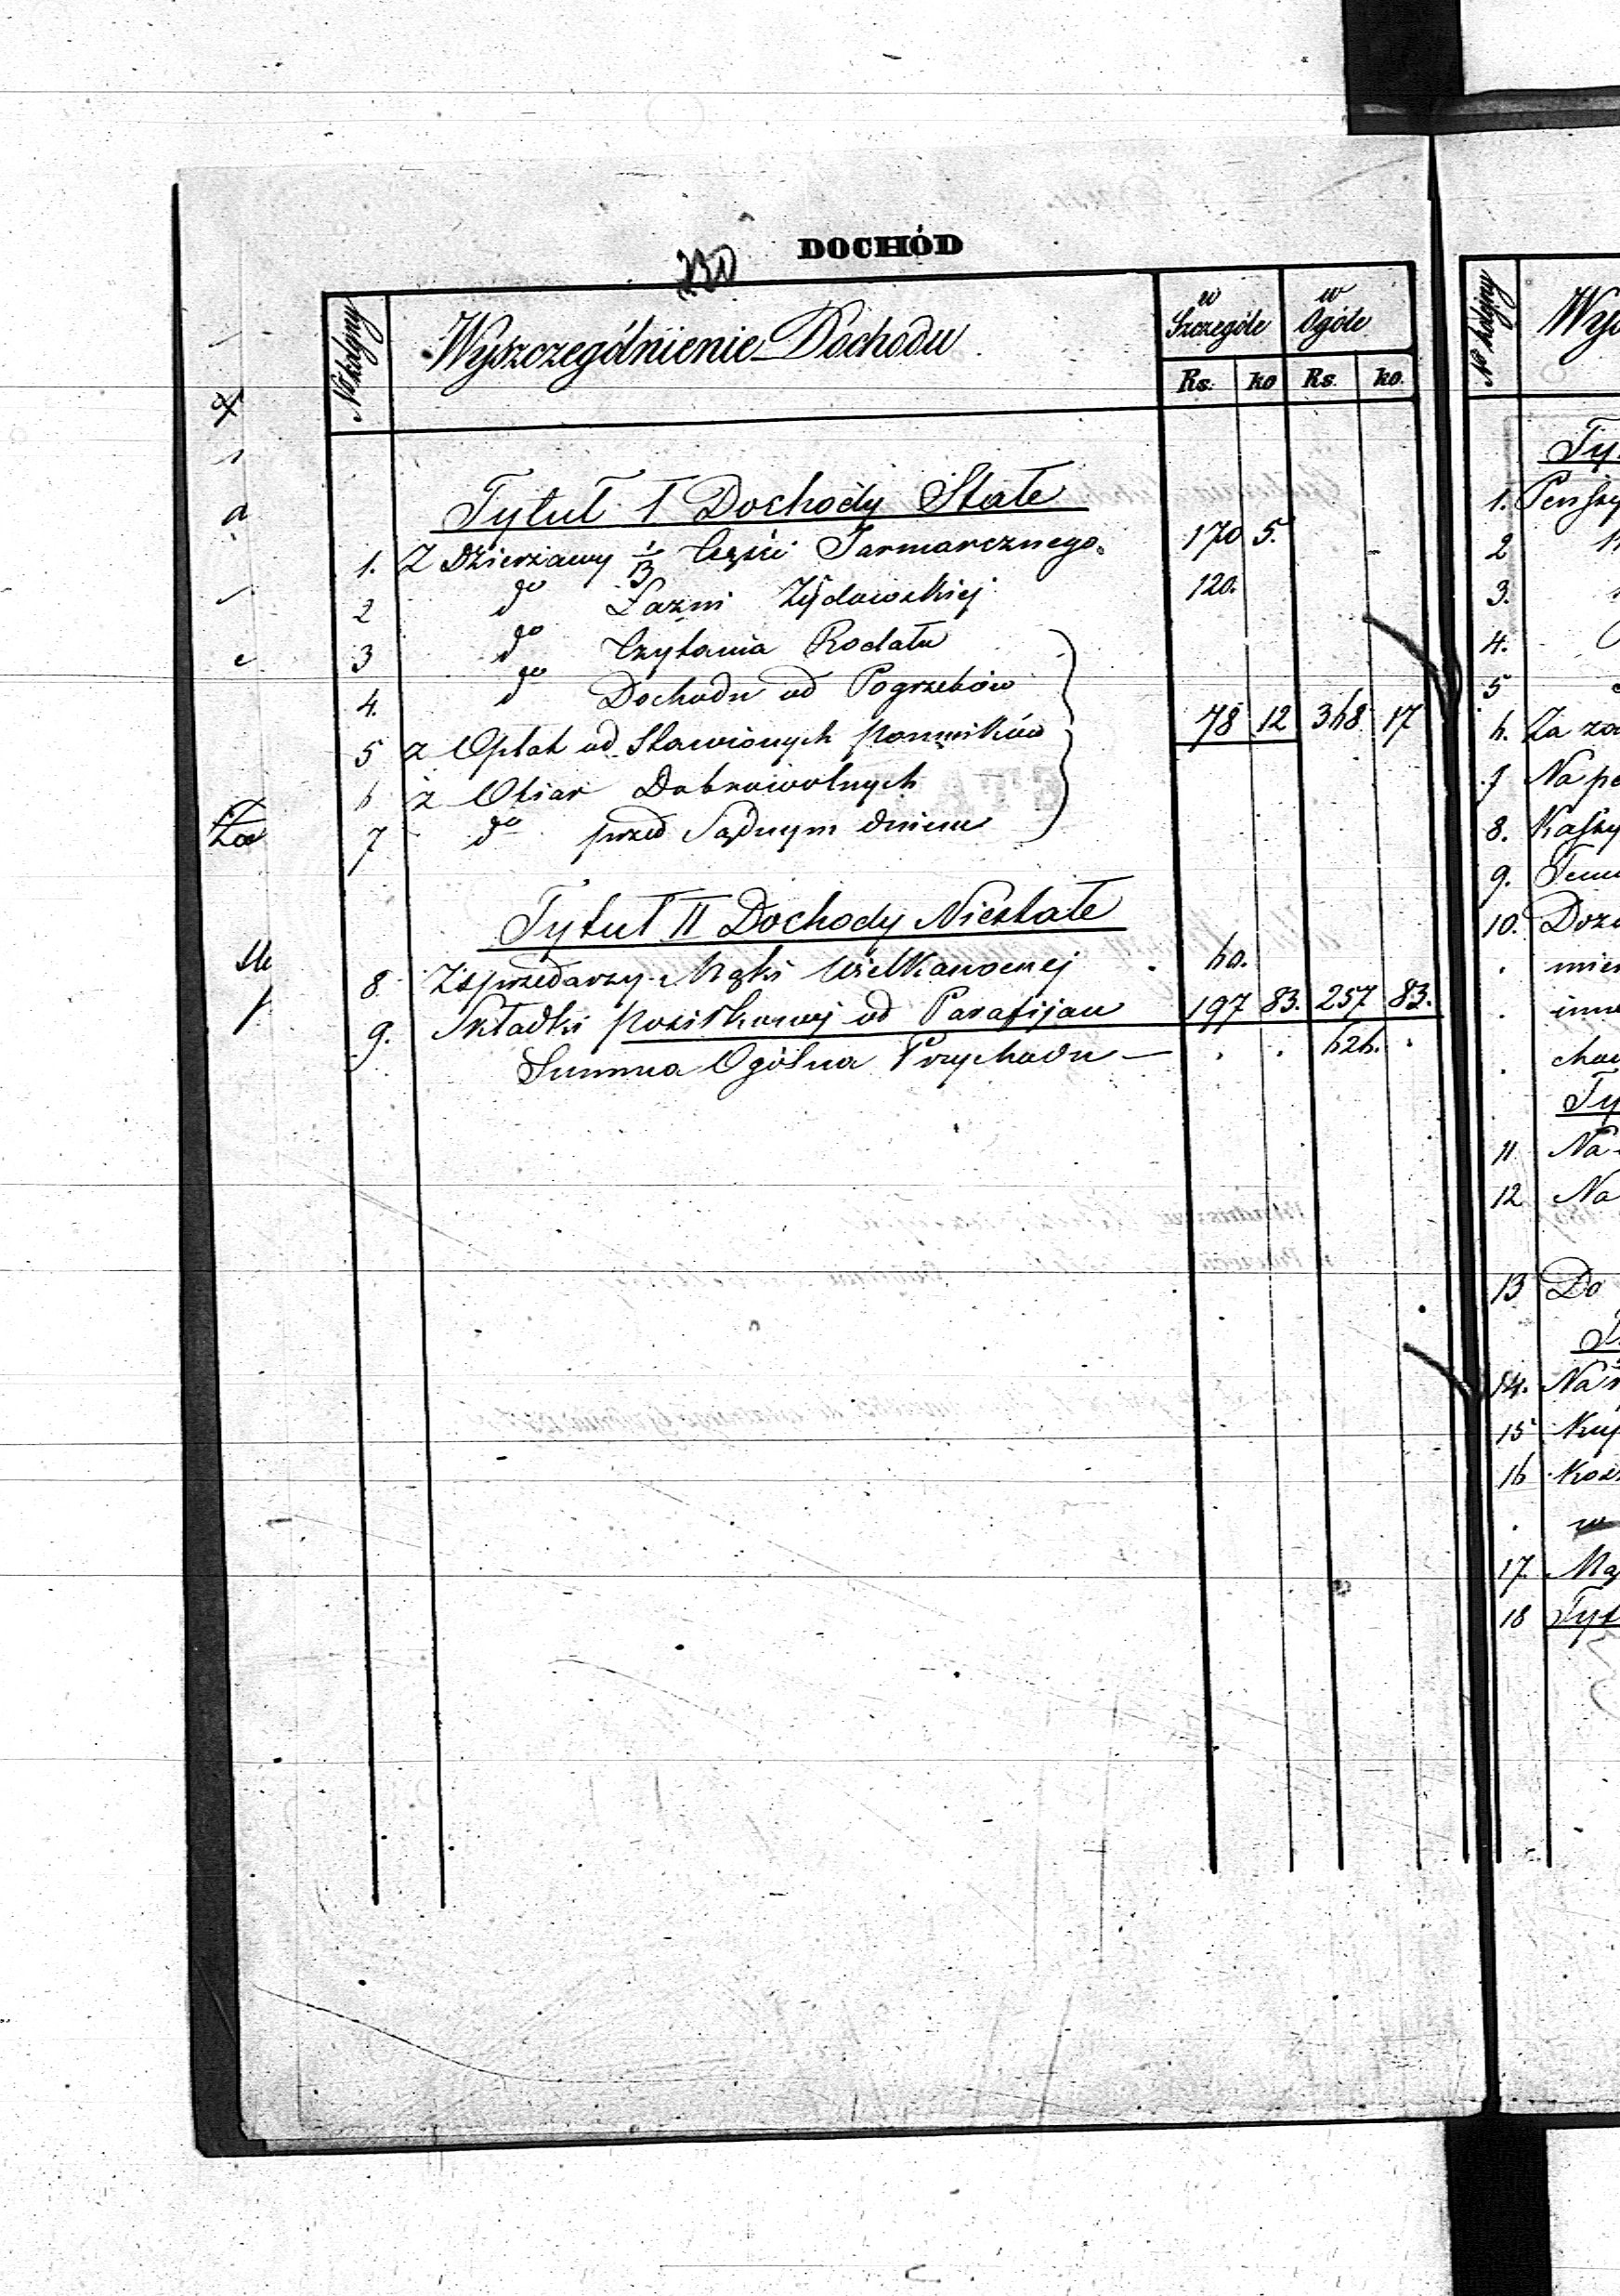 DOCHÓD
No kolejny Wyszczególnienie Dochodu w Szczególe w Ogóle
Rs. ko Rs. ko.
Tytuł I Dochody Stałe
1. Z Dzierżawy 1/3 Części Jarmarcznego. 170 5.
2 do Łaźni Żydowskiej 120.
3 do Czytania Rodału
4. do Dochodu od Pogrzebów
5 z Opłat od Stawionych pomników 78 12 368 17
6 z Ofiar Dobrowolnych
7 do przed Sądnym dniem
Tytuł II Dochody Niestałe
8 Z sprzedarzy Mąki Wielkanocnej 60.
9. Składki posiłkowej od Parafijan 197 83. 257 83.
Summa Ogólna Przychodu — . . 626. .
No kolejny Wys
Ty
1. Penssy
2
3.
4.
5
6. Za
7 Na
8. Kassy
9. Temu
10. Dozo
mies
inne
Ty
11 Na
12 Na
13 Do
14. Na
15 Kup
16 Kosz
w
17. Mą
18 Tyt